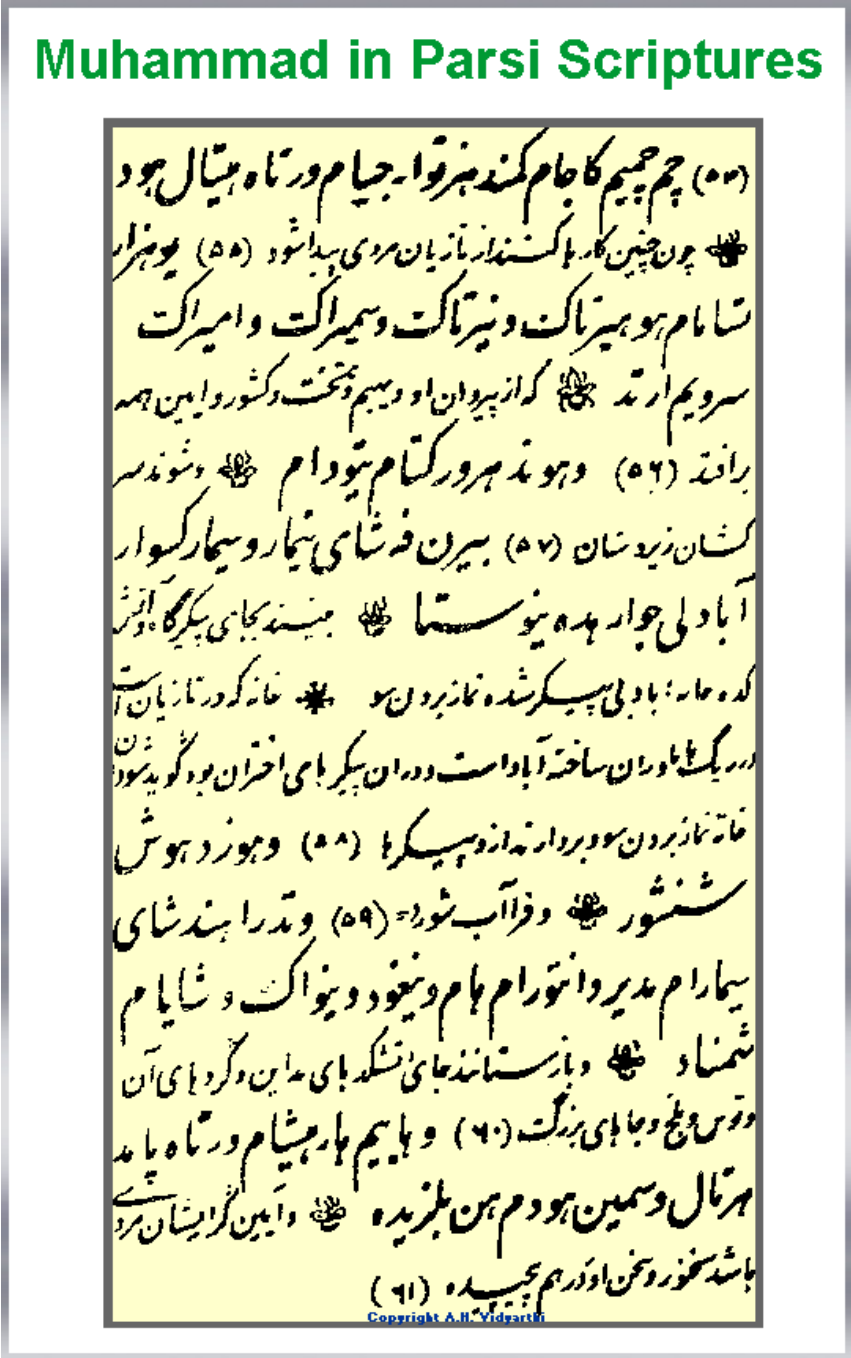 Muhammad in Parsi Scriptures
(۵۴) چم چمیم کاجام کمند هزتوار جیام ورتاه هیتال هود
چون چنین کارها کنند از تازیان مردی پیدا شود (۵۵) یو هزار
شامام هو هیرتاک و نیرتاک و سمیراک و امیراک
سرویم ارتد که از پیروان او دیهیم و تخت و کشور و آیین همه
برافتد (۵۶) و هوند هرور کتام تیودام و شوند سر
کشان زیردستان (۵۷) بیرن فه شای تیمار و سیمار کسوار
آباد لی جوار هده ینوستا بینند بجای پیکرگاه و آتش
کده خانه آباد بی پیکر شده نماز بردن سو خانه که در تازیان است
در ریگ هاماوران ساخته آباد است و در ان پیکرهای اختران بود گوید شود ان
خانه نماز بردن سو و بردارند ازو پیکرها (۵۸) و هوزد هوش
شنشور و فراآب شور (۵۹) و ندرا هند شای
سیمارام مدیر و انتورام هام و نیغود و نیواک و شایام
شمناد و باز ستانند جای آتشکدهای مداین و گردهای آن
و توس و بلخ و جاهای بزرگ (۶۰) و هاییم هار هیشام ورتاه پامد
هرتال و سمین هودم هن بلزیده و آیین گر ایشان مردی
باشد سخنور و سخن او درهم پیچیده (۶۱)
Copyright A.H. Vidyarthi